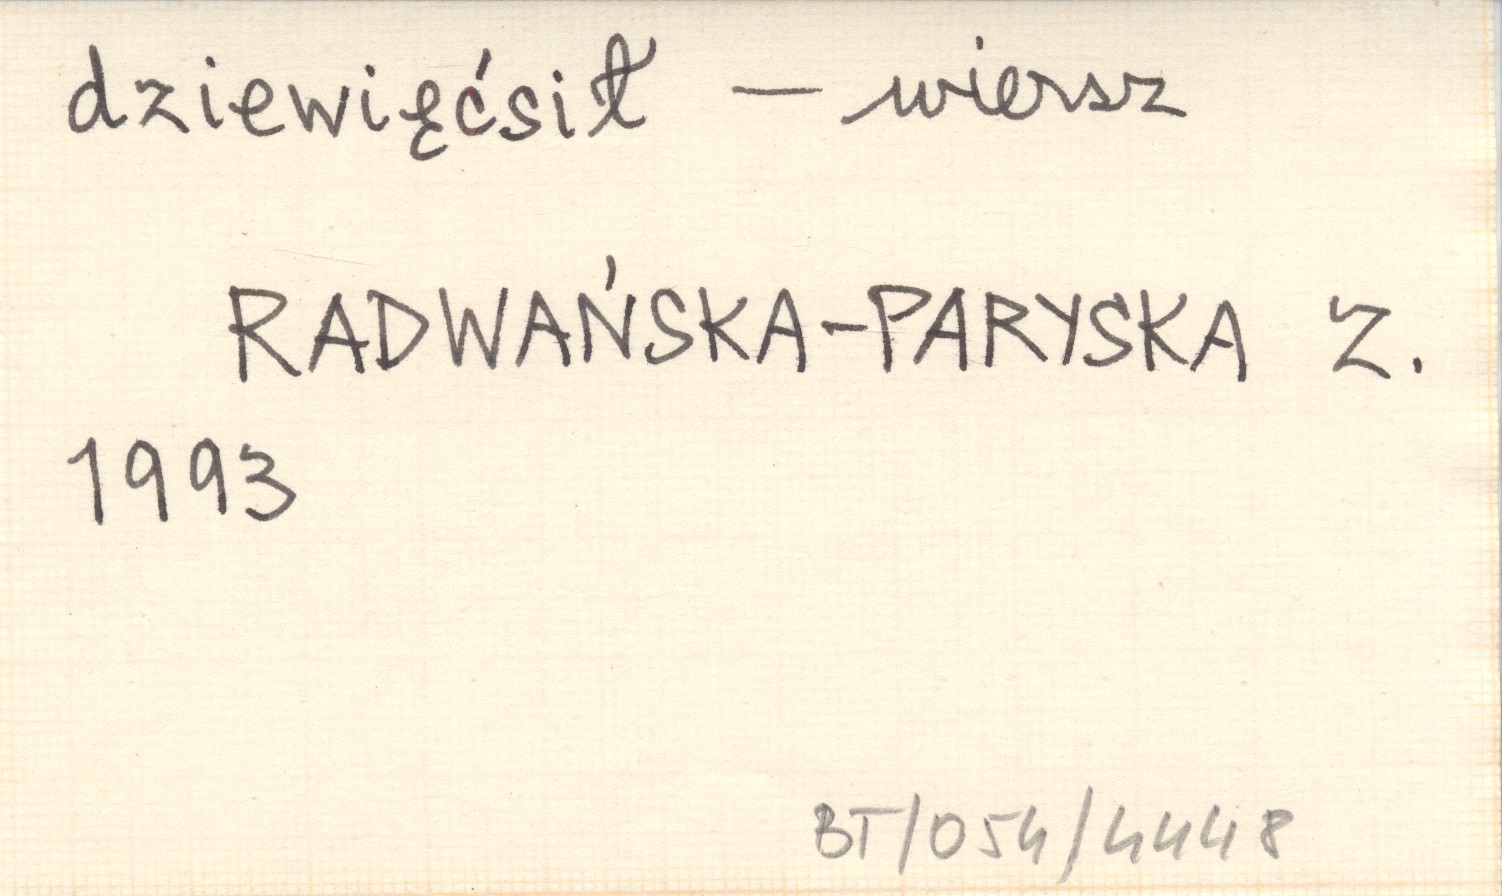 dziewięćsił — wiersz
RADWAŃSKA-PARYSKA Z.
1993
BT/054/4448